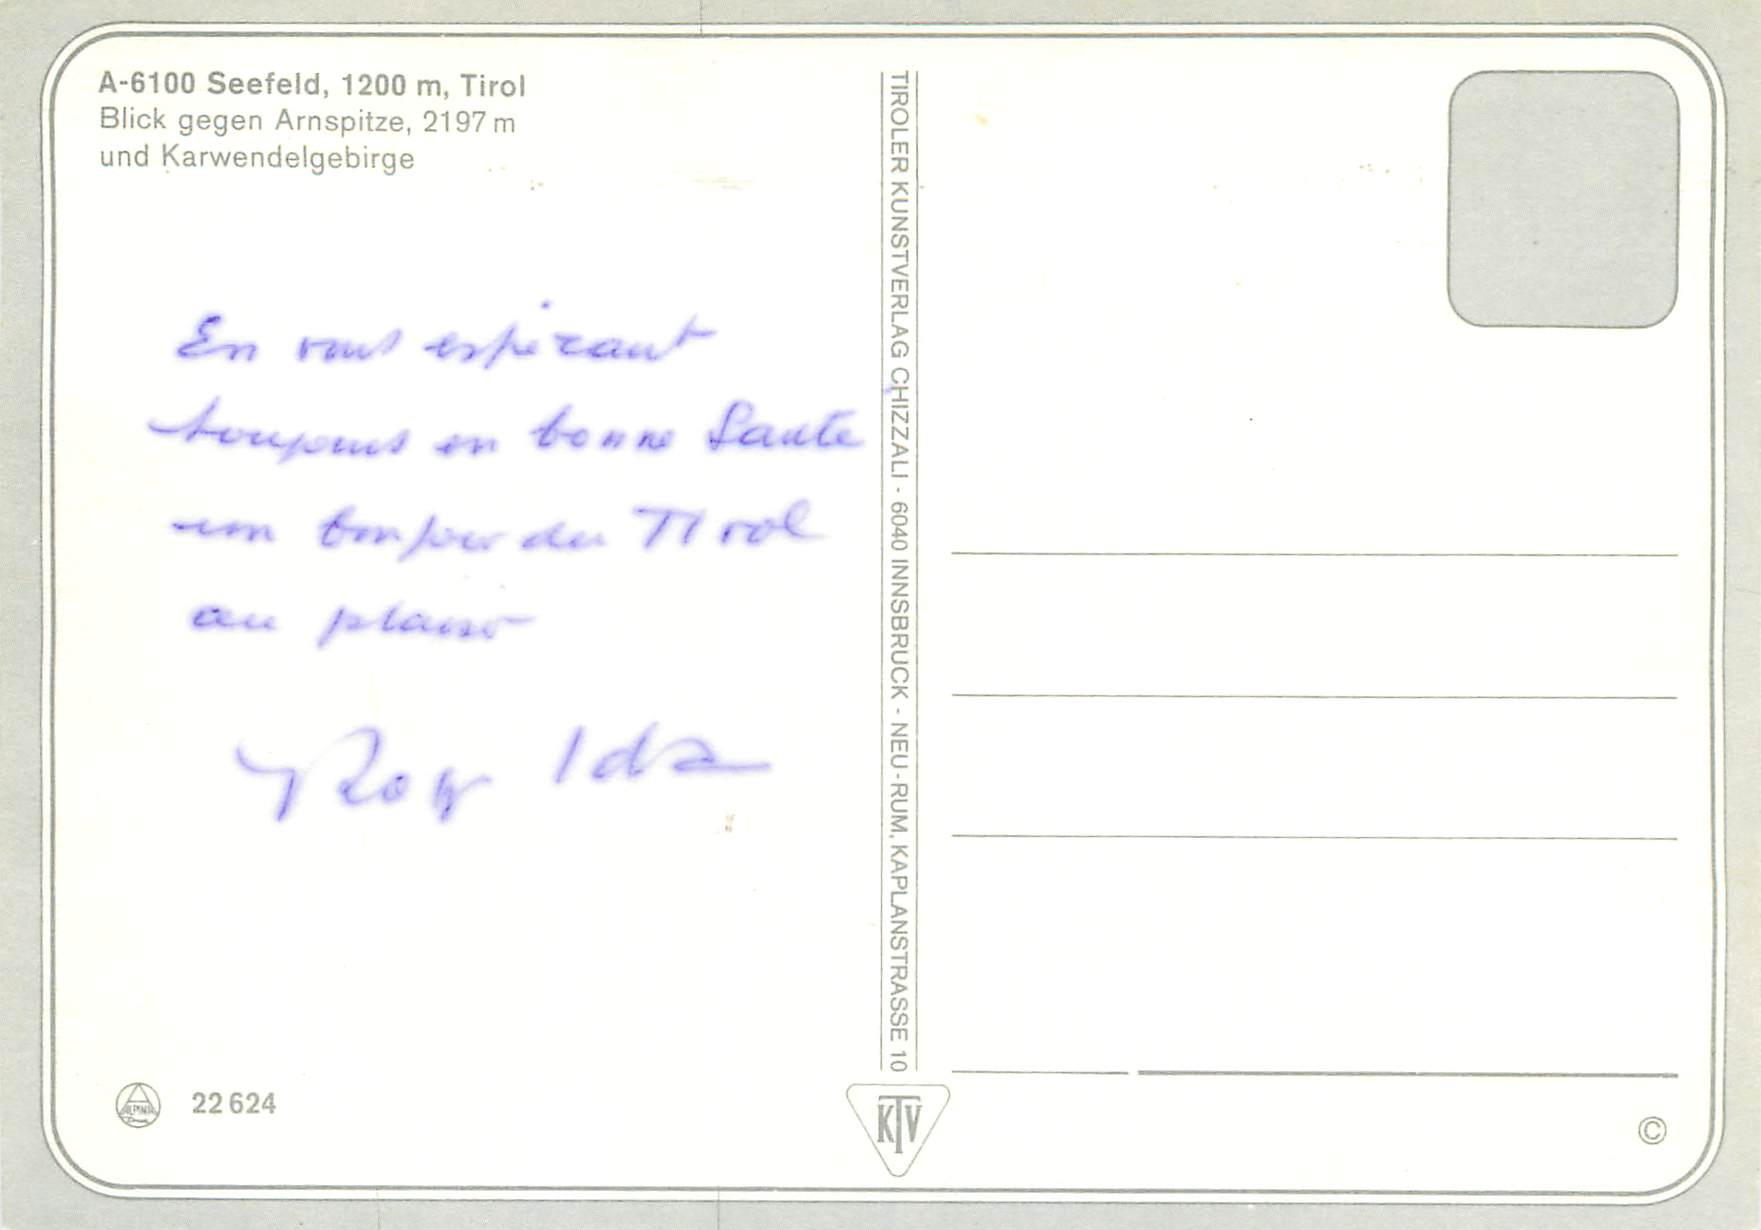 A-6100 Seefeld, 1200 m, Tirol
Blick gegen Arnspitze, 2197 m
und Karwendelgebirge
En vous espérant
toujours en bonne Sante
un bonjour du Tirol
au plaisir
Ida
22 624
TIROLER KUNSTVERLAG CHIZZALI - 6040 INNSBRUCK - NEU-RUM, KAPLANSTRASSE 10
KTV
ALPINA
©